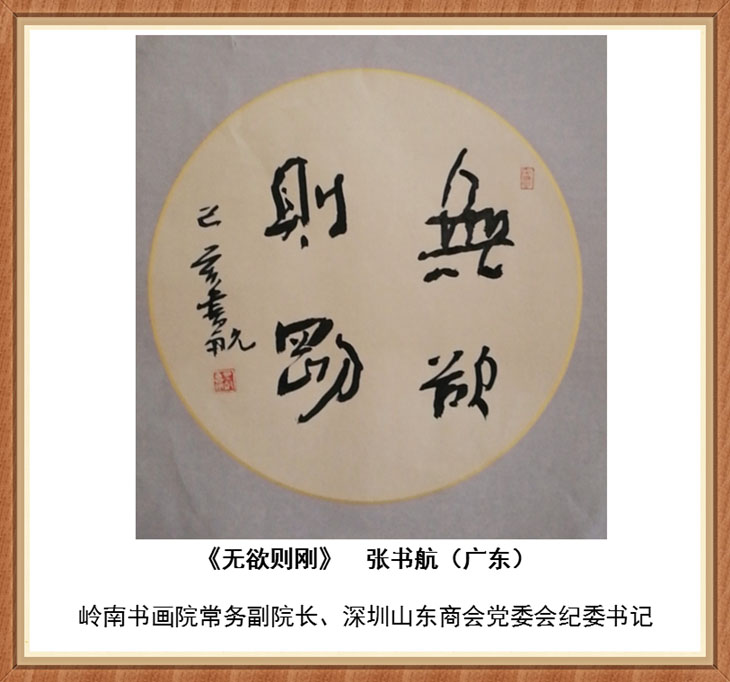 無欲
則剛
己亥書航
《无欲则刚》 张书航（广东）
岭南书画院常务副院长、深圳山东商会党委会纪委书记